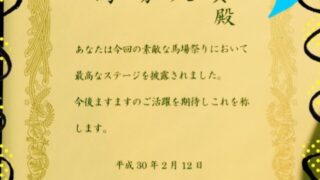 殿
あなたは今回の素敵な馬場祭りにおいて
最高なステージを披露されました。
今後ますますのご活躍を期待しこれを称
します。
平成30年2月12日